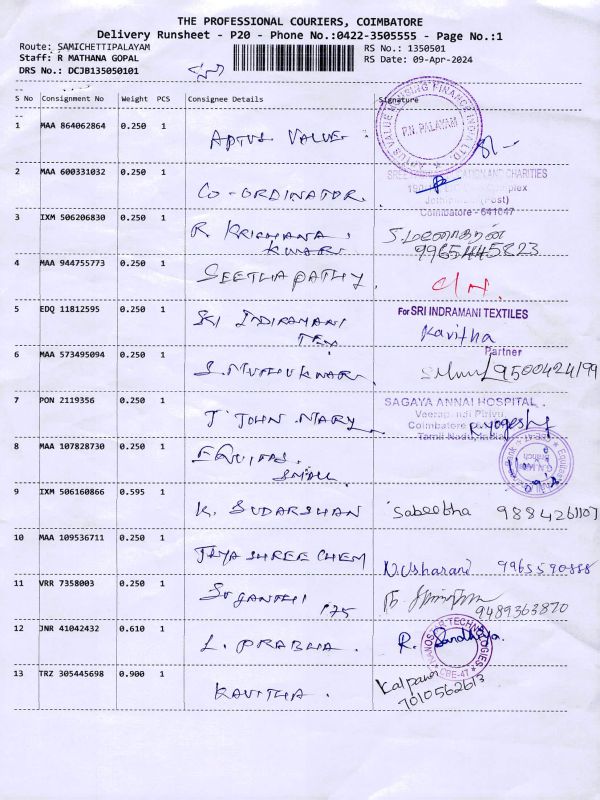 THE PROFESSIONAL COURIERS, COIMBATORE
Delivery Runsheet - P20 - Phone No.:0422-3505555 - Page No.:1
Route: SAMICHETTIPALAYAM
RS No.: 1350501
Staff: R MATHANA GOPAL
RS Date: 09-Apr-2024
DRS No.: DCJB135050101
S No Consignment No Weight PCS Consignee Details Signature
1 MAA 864062864 0.250 1 APTUS VALUE
APTUS VALUE HOUSING FINANCE IND. LTD.
P.N. PALAYAM
2 MAA 600331032 0.250 1 CO-ORDINATOR
AND CHARITIES
(Post)
Coimbatore - 641047
3 IXM 506206830 0.250 1 R. KRISHANA
KUMAR
S. மனோகரன்
9965445823
4 MAA 944755773 0.250 1 SEETHAPATHY
5 EDQ 11812595 0.250 1 SRI INDIRAMANI
TEX
For SRI INDRAMANI TEXTILES
Kavitha
Partner
6 MAA 573495094 0.250 1 S. MUTHUKUMAR
9500424199
7 PON 2119356 0.250 1 T JOHN MARY
SAGAYA ANNAI HOSPITAL
Veerapandi Pirivu
Coimbatore
Tamil Nadu, India
R. yogesh
8 MAA 107828730 0.250 1 EQUITAS
SMALL
9 IXM 506160866 0.595 1 K. SUDARSHAN Sabeebha 9884261107
10 MAA 109536711 0.250 1 JAYA SHREE CHEM N. Usharani 9965590888
11 VRR 7358003 0.250 1 SUGANTHI
175
9489363870
12 JNR 41042432 0.610 1 L. PRABHA R. Sandhiya
TECHNOLOGIES
CBE-47
13 TRZ 305445698 0.900 1 KAVITHA
Kalpana
7010562613